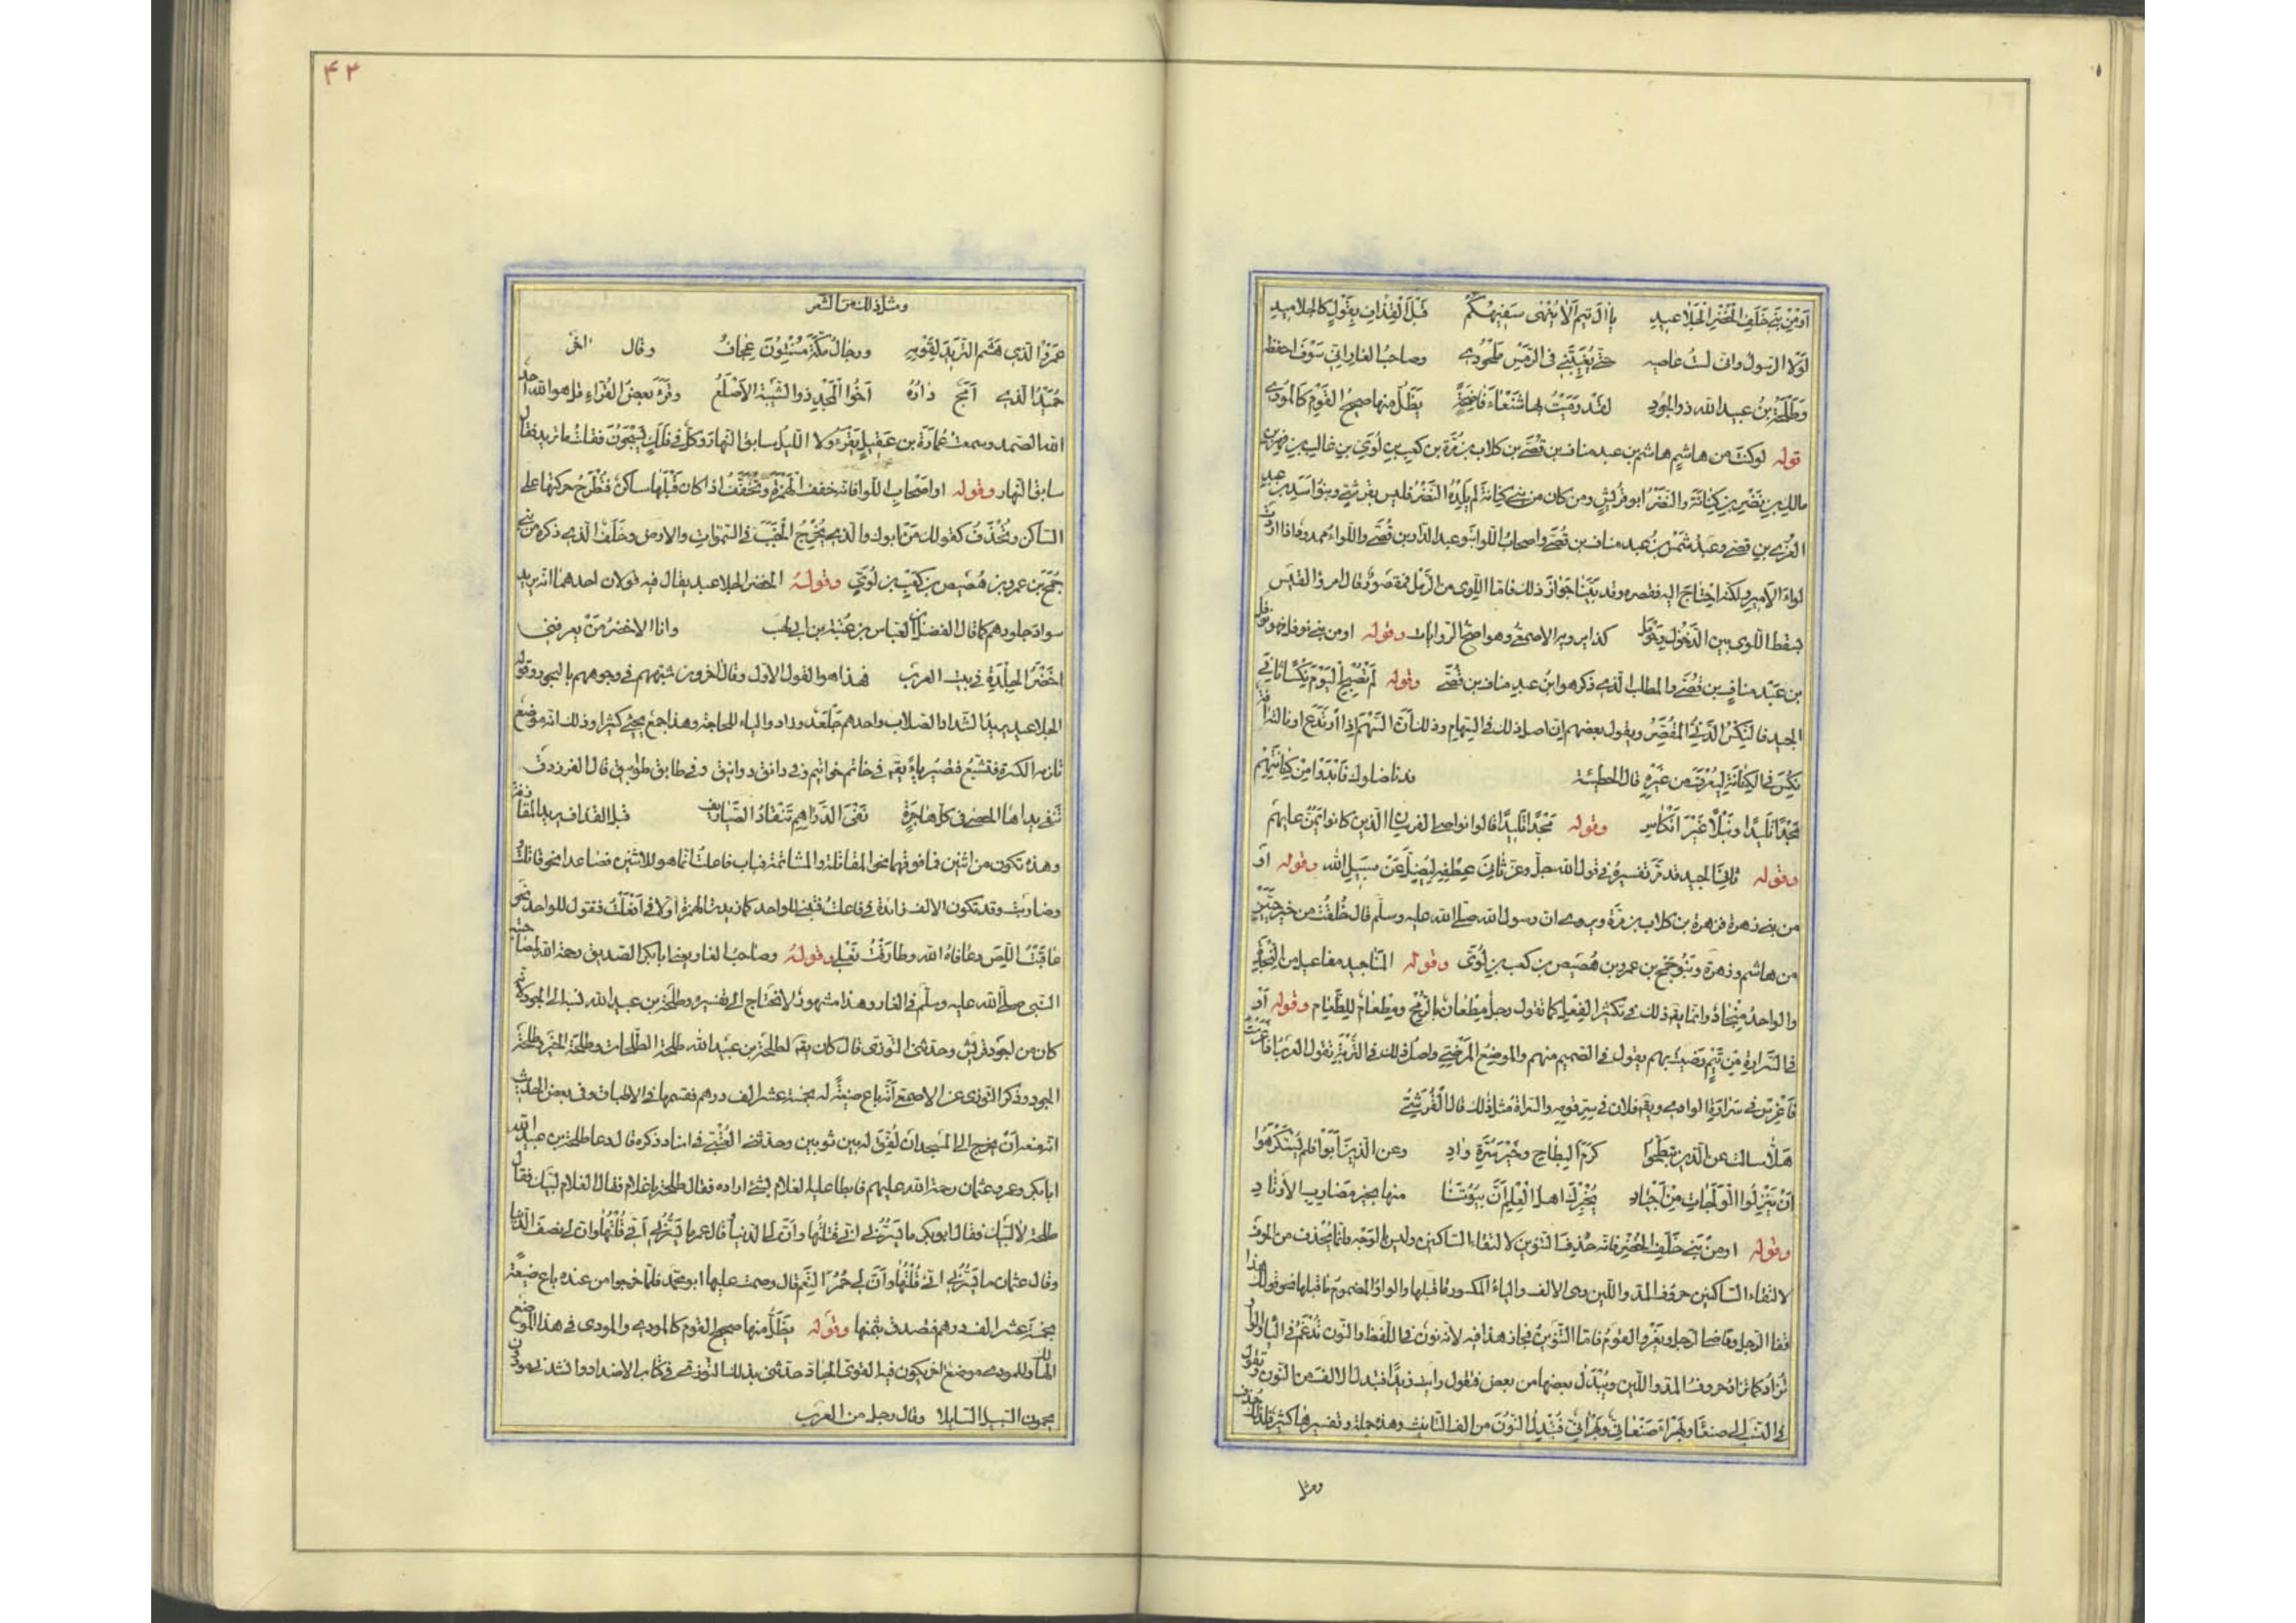 أو من بني خلف الخضر الجلاعيد يا آل تيم ألا ينهى سفيهكم قبل القذاف بقول كالجلاميد
لولا الرسول واني لست عاصيه حتى يغيبني في الرمس ملحودي وصاحب الغار اني سوف احفظه
وطلحة بن عبيد الله ذو الجود لقد رميت بها شنعاء فاضحة يظل منها صحيح القوم كالمودي
قوله لو كنت من هاشم هاشم بن عبد مناف بن قصي بن كلاب بن مرة بن كعب بن لؤي بن غالب بن فهر بن
مالك بن نضر بن كنانة والنضر ابو قريش ومن كان من بني كنانة لم يلده النضر فليس بقرشي وبنو اسد بن عبد
العزى بن قصي وعبد شمس بن عبد مناف بن قصي واصحاب اللوا بنو عبد الدار بن قصي واللواء ممدود فاذا اردت
لواء الامير ولكنه احتاج اليه فقصره وقد بينا جواز ذلك فاما اللوى من الرمل فمقصور قال امرؤ القيس
بسقط اللوى بين الدخول وحومل كذا يرويه الاصمعي وهو اصح الروايات وقوله او من بني نوفل فهو نوفل
بن عبد مناف بن قصي والمطلب الذي ذكر هو ابن عبد مناف بن قصي وقوله لم تصبح اليوم نكسا ثاني
الجيد فالنكس الدني المقصر ويقول بعضهم ان اصل ذلك في السهام وذلك أن السهم اذا ارتدع او نالته آفة
نكس في الكنانة ليعرف من غيره قال الحطيئة قد ناضلوك فأبدوا من كنانتهم
مجدا تليدا ونبلا غير انكاس وقوله مجدا تليدا قالوا نواصي الفرسان الذين كانوا يمن عليهم
وقوله ثاني الجيد قد مر تفسيره في قول الله جل وعز ثاني عطفه ليضل عن سبيل الله وقوله او
من بني زهرة فزهرة بن كلاب بن مرة ويروى ان رسول الله صلى الله عليه وسلم قال خلقت من خير حيين
من هاشم وزهرة وبنو جمح بن عمرو بن هصيص بن كعب بن لؤي وقوله المناجيد مفاعيل من النجدة
والواحد منجاد وانما يقع ذلك في تكثير الفعل كما تقول رجل مطعان بالرمح ومطعام للطعام وقوله او
في السرارة من تيم رضيت بهم يقول في الصميم منهم والموضع المرضي واصل ذلك في التربة تقول العرب اذا غرست
فاغرس في سرارة الوادي ويقع فلان في سر قومه والسراة مثل ذلك قال القرشي
هلا سالت عن الذين تبطحوا كرم البطاح وخير سرة واد وعن الذين أبوا فلم يستكرهوا
أن ينزلوا الولجات من اجياد يخبرك اهل العلم أن بيوتنا منها بخير مضارب الأوتاد
وقوله او من بني خلف الخضر فانه حذف التنوين لالتقاء الساكنين وليس بالوجه وانما يحذف من الحرف
لالتقاء الساكنين حروف المد واللين وهي الالف والياء المكسور ما قبلها والواو المضموم ما قبلها نحو قولك هذا
قفا الرجل وقاضي الرجل ويغزو القوم فاما التنوين فجاز هذا فيه لانه نون في اللفظ والنون تدغم في الياء والواو
وتزاد كما تزاد حروف المد واللين ويبدل بعضها من بعض فتقول رايت زيدا فتبدل الالف من النون وتقول
في النسب الى صنعاء وبهراء صنعاني وبهراني فتبدل النون من الف التانيث وهذه جملة وتفسيرها كثير فلذلك حذف
ومثل
٤٣
ومثل ذلك من الشعر
عمرو الذي هشم الثريد لقومه ورجال مكة مسنتون عجاف وقال اخر
حميد الذي أمج داره أخو المجد ذو الشيبة الاصلع وقرء بعض القراء قل هو الله احد
الله الصمد وسمعت عمارة بن عقيل يقرء ولا الليل سابق النهار وكل في فلك يسبحون فقلت ما تريد فقال
سابق النهار وقوله او اصحاب اللوا فانه خفف الهمزة وتخفف اذا كان قبلها ساكن فتطرح حركتها على
الساكن وتحذف كقولك من ابوك والذي يخرج الخب في السموات والارض وخلف الذي ذكره من بني
جمح بن عمرو بن هصيص بن كعب بن لؤي وقوله الخضر الجلاعيد يقال فيه قولان احدهما انه يريد
سواد جلودهم كما قال الفضل بن العباس بن عتبة بن ابي لهب وانا الاخضر من يعرفني
اخضر الجلدة في بيت العرب فهذا هو القول الاول وقال اخرون شبههم في وجودهم بالبحور وقوله
الجلاعيد يريد الشداد الصلاب واحدهم جلعد وزاد الياء للحاجة وهذا جمع يجيء كثيرا وذلك انه موضع
تلزمه الكسرة فتشبع فتصير ياء يقع في خاتم خواتيم وفي دانق دوانيق وفي طابق طوابيق قال الفرزدق
تنفي يداها الحصى في كل هاجرة نفي الدراهم تنقاد الصياريف وقوله قبل القذاف يريد المقاذفة
وهذه تكون من اثنين فما فوقهما نحو المقاتلة والمشاتمة فباب فاعلت انما هو للاثنين فصاعدا نحو قاتلت
وضاربت وقد تكون الالف زائدة في فاعلت فتبنى للواحد كما زيدت الهمزة أولا في أفعلت فتقول للواحد نحو
عاقبت اللص وعافاه الله وطارقت نعلي وقوله وصاحب الغار يعني ابا بكر الصديق رحمة الله لمصاحبته
النبي صلى الله عليه وسلم في الغار وهذا مشهور لا تحتاج الى تفسيره وطلحة بن عبيد الله نسبه الى الجود لانه
كان من اجود قريش وحدثني التوزي قال كان يقع لطلحة بن عبيد الله طلحة الطلحات وطلحة الخير وطلحة
الجود وذكر التوزي عن الاصمعي أنه باع ضيعة له بخمسة عشر الف درهم فقسمها في الاطباق وفي بعض الحديث
انه منعه أن يخرج الى المسجد ان لفق له بين ثوبين وحدثني العتبي في اسناد ذكره قال دعا طلحة بن عبيد الله
ابا بكر وعمر وعثمان رحمة الله عليهم فابطا عليه الغلام بشيء اراده فقال طلحة يا غلام فقال الغلام لبيك فقال
طلحة لا لبيك فقال ابو بكر ما يسرني اني قلتها وأن لي الدنيا وقال عمر ما يسرني أني قلتها وان لي نصف الدنيا
وقال عثمان ما يسرني اني قلتها وأن لي حمر النعم قال وصمت عليها ابو محمد فلما خرجوا من عنده باع ضيعة
بخمسة عشر الف درهم فتصدق بثمنها وقوله يظل منها صحيح القوم كالمودي والمودي في هذا الموضع
الهالك وللمودي موضع اخر يكون فيه القوي الجاد حدثني بذلك التوزي في كتاب الاضداد وانشدني مودون
يحمون السبيل السابلا وقال رجل من العرب